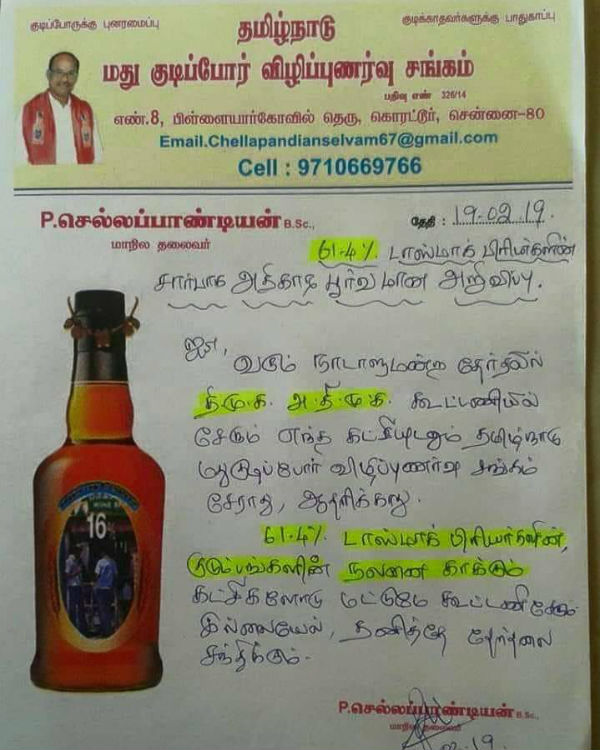 குடிப்போருக்கு புனரமைப்பு
குடிக்காதவர்களுக்கு பாதுகாப்பு
தமிழ்நாடு
மது குடிப்போர் விழிப்புணர்வு சங்கம்
பதிவு எண் 326/14
எண்.8, பிள்ளையார்கோவில் தெரு, கொரட்டூர், சென்னை-80
Email.Chellapandianselvam67@gmail.com
Cell : 9710669766
P.செல்லப்பாண்டியன் B.Sc.,
மாநில தலைவர்
தேதி : 19.02.19.
61.4%. டாஸ்மாக் பிரியர்களின்
சார்பாக அதிகாரபூர்வமான அறிவிப்பு.
வரும் நாடாளுமன்ற தேர்தலில்
தி.மு.க. அ.தி.மு.க. கூட்டணியில்
சேரும் எந்த கட்சியுடனும் தமிழ்நாடு
மதுகுடிப்போர் விழிப்புணர்வு சங்கம்
சேராது, ஆதரிக்காது.
61.4%. டாஸ்மாக் பிரியர்களின்,
குடும்பங்களின் நலனை காக்கும்
கட்சிகளோடு மட்டுமே கூட்டணி சேரும்
இல்லையேல், தனித்தே தேர்தலை
சந்திக்கும்.
16
P.செல்லப்பாண்டியன் B.Sc.,
மாநில தலைவர்